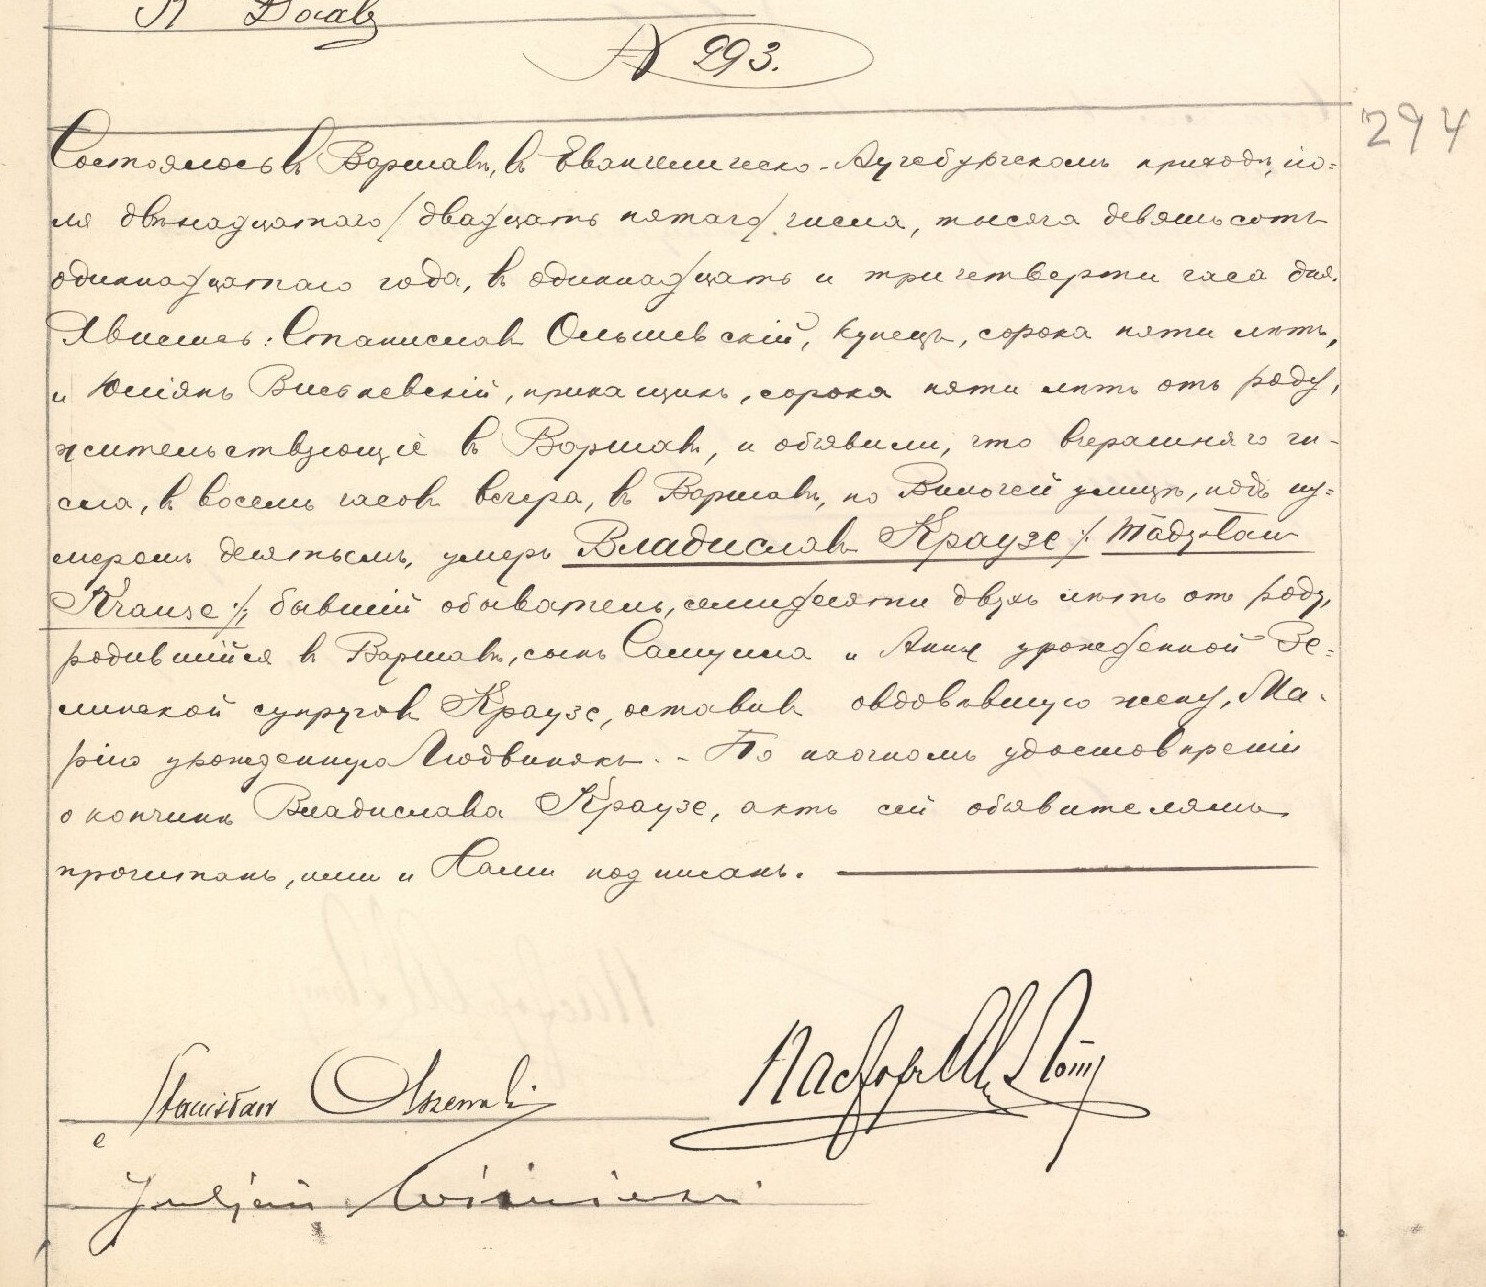 № 293.
294
Состоялось въ Варшавѣ, въ Евангелическо-Аугсбургскомъ приходѣ, ію=
ля двѣнадцатаго /двадцать пятаго/ числа, тысяча девятьсотъ
одиннадцатаго года, въ одиннадцать и три четверти часа дня.
Явились: Станиславъ Ольшевскій, купецъ, сорока пяти лѣтъ,
и Юліянъ Висьневскій, прикащикъ, сорока пяти лѣтъ отъ роду,
жительствующіе въ Варшавѣ, и объявили, что вчерашняго чи-
сла, въ восемь часовъ вечера, въ Варшавѣ, по улицѣ, подъ ну=
меромъ девятымъ, умеръ Владиславъ Краузе /:
Krause:/, бывшій обыватель, семидесяти двухъ лѣтъ отъ роду,
родившійся въ Варшавѣ, сынъ Самуила и Анны урожденной Зе=
линской супруговъ Краузе, оставивъ овдовѣвшую жену, Ма-
рію урожденную Людвинякъ. - По наочномъ удостовѣреніи
о кончинѣ Владислава Краузе, актъ сей объявителямъ
прочитанъ, ими и Нами подписанъ.
Stanisław Olszewski
Пасторъ
Juljan Wiśniewski